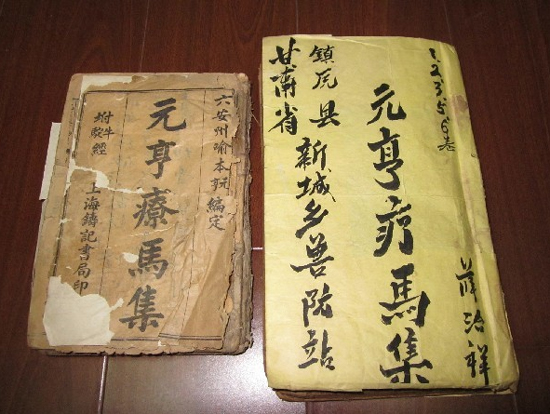 六安州喻本元編定
元亨療馬集
附牛駝經
上海鑄記書局印
1.2.3.5.6卷
元亨疗馬集
薛治祥
甘肃省
鎮原县
新城乡兽防站